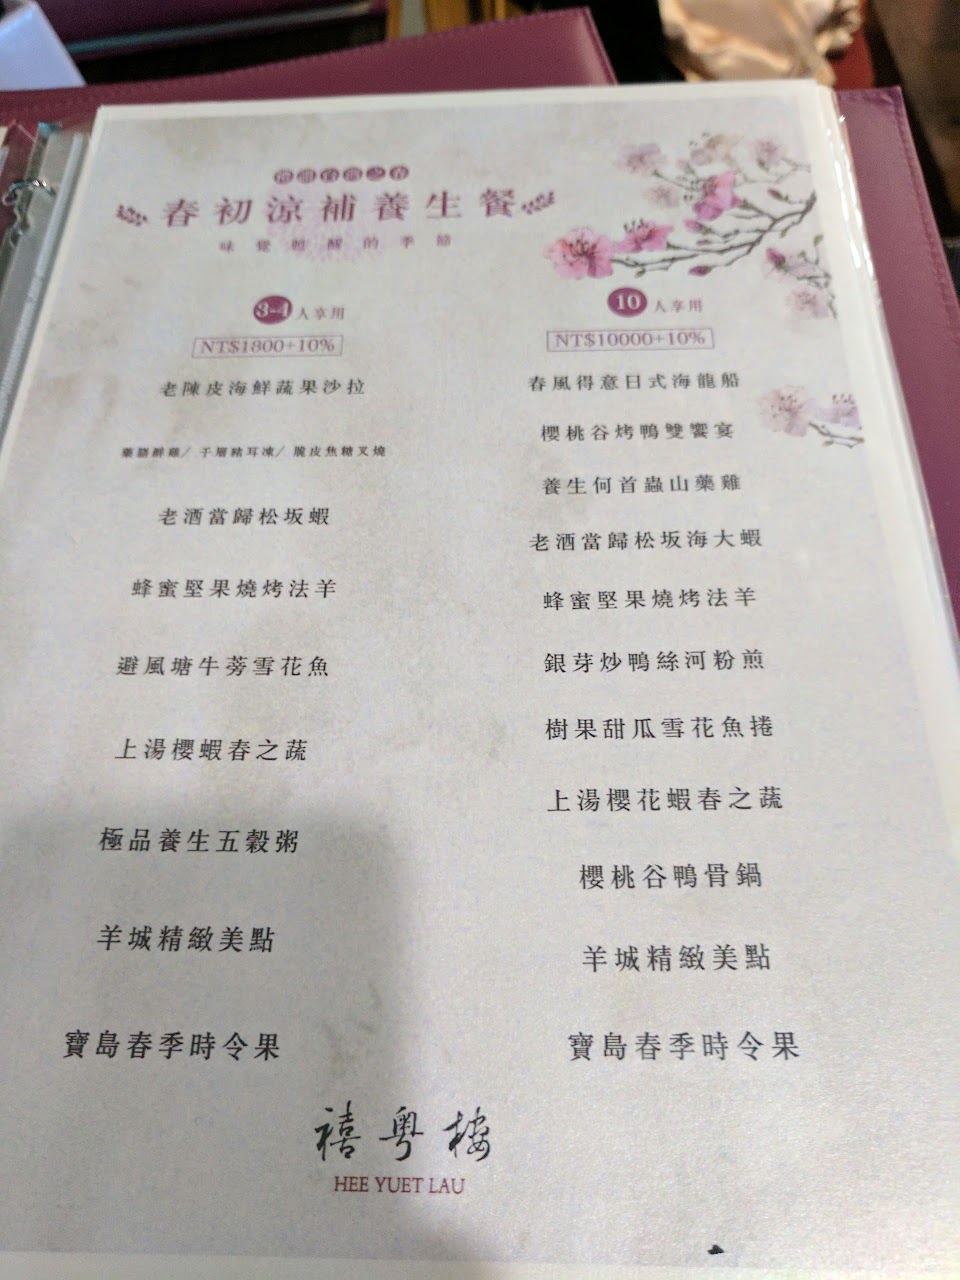 春初涼補養生餐
味覺甦醒的季節
3-4人享用
NT$1800+10%
老陳皮海鮮蔬果沙拉
藥膳醉雞/千層豬耳凍/脆皮焦糖叉燒
老酒當歸松坂蝦
蜂蜜堅果燒烤法羊
避風塘牛蒡雪花魚
上湯櫻蝦春之蔬
極品養生五穀粥
羊城精緻美點
寶島春季時令果
10人享用
NT$10000+10%
春風得意日式海龍船
櫻桃谷烤鴨雙饗宴
養生何首蟲山藥雞
老酒當歸松坂海大蝦
蜂蜜堅果燒烤法羊
銀芽炒鴨絲河粉煎
樹果甜瓜雪花魚捲
上湯櫻花蝦春之蔬
櫻桃谷鴨骨鍋
羊城精緻美點
寶島春季時令果
禧粵樓
HEE YUET LAU